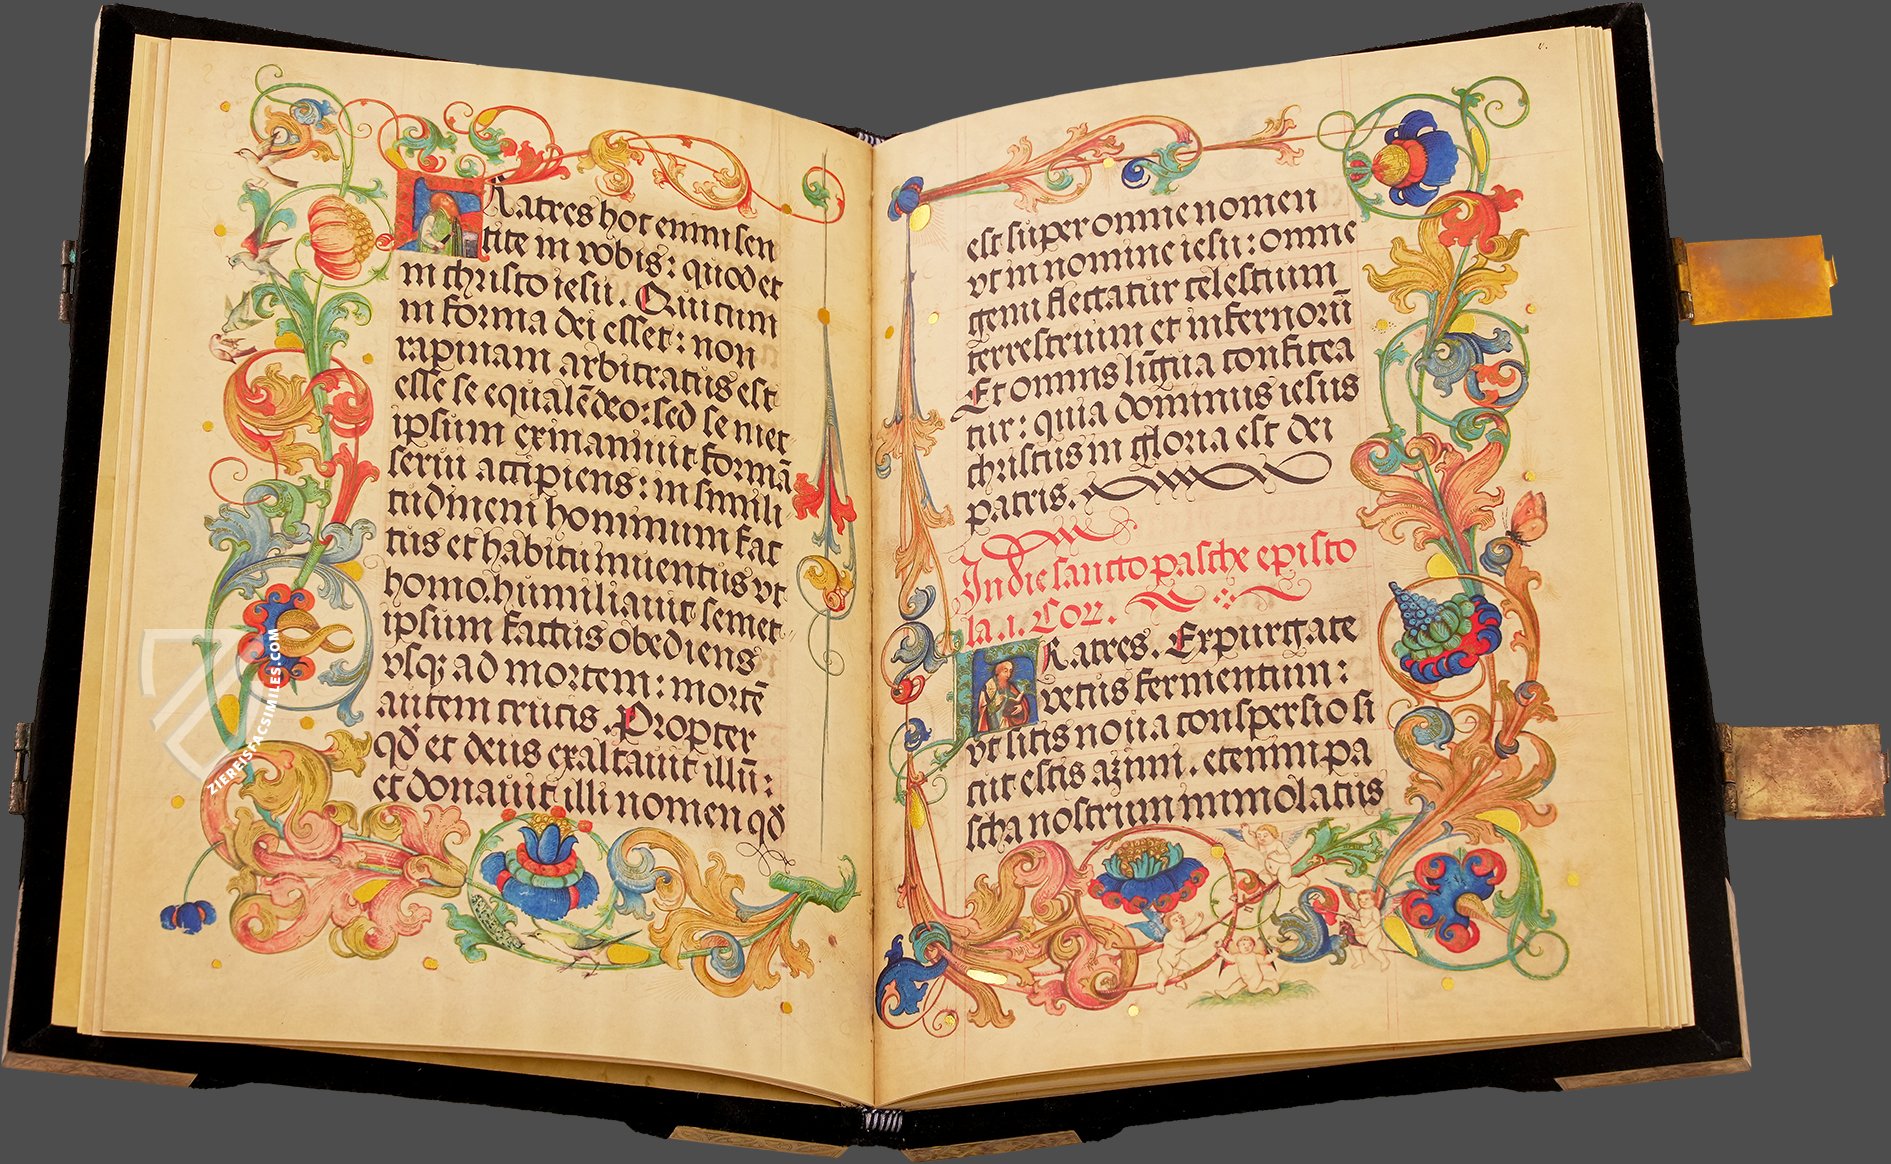 Fratres hoc enim sen
tite in vobis: quod et
in christo iesu. Qui cum
in forma dei esset: non
rapinam arbitratus est
esse se equalē deo: sed se met
ipsum exinanivit formā
servi accipiens: in simili
tudinem hominum fac
tus et habitu inventus vt
homo. humiliavit semet
ipsum factus obediens
vsq; ad mortem: mortē
autem crucis. Propter
qd̄ et deus exaltavit illū:
et donavit illi nomen qd̄
est super omne nomen
vt in nomine iesu: omne
genu flectatur celestium
terrestrium et infernorū
Et omnis lingua confitea
tur: quia dominus iesus
christus in gloria est dei
patris.
In die sancto pasche episto
la .1. Corr.
Fratres. Expurgate
vetus fermentum:
vt sitis nova conspersio si
cut estis azimi. etenim pa
scha nostrum immolatus
ZIEREISFACSIMILES.COM